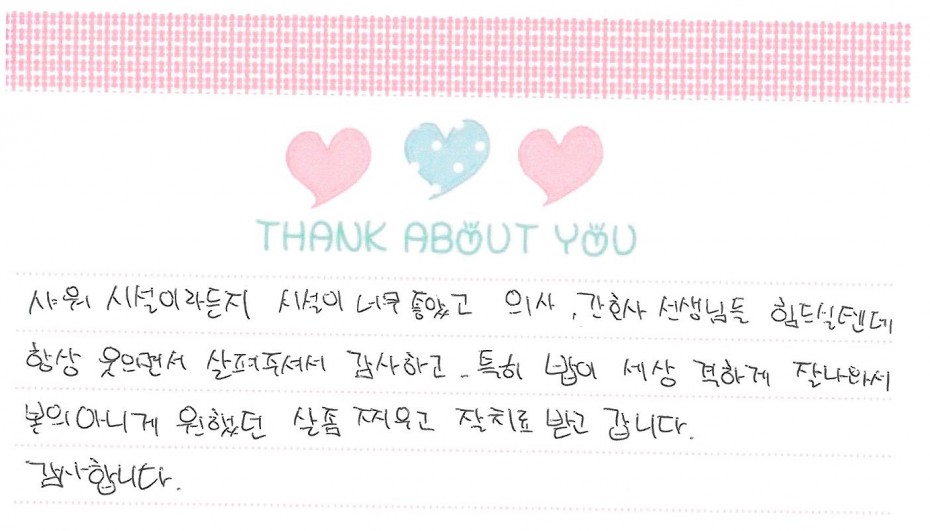 THANK ABOUT YOU
샤워 시설이라든지 시설이 너무 좋았고 의사, 간호사 선생님들 힘드실텐데
항상 웃으면서 살펴주셔서 감사하고. 특히 밥이 세상 격하게 잘나와서
본의아니게 원했던 살좀 찌우고 잘치료 받고 갑니다.
감사합니다.